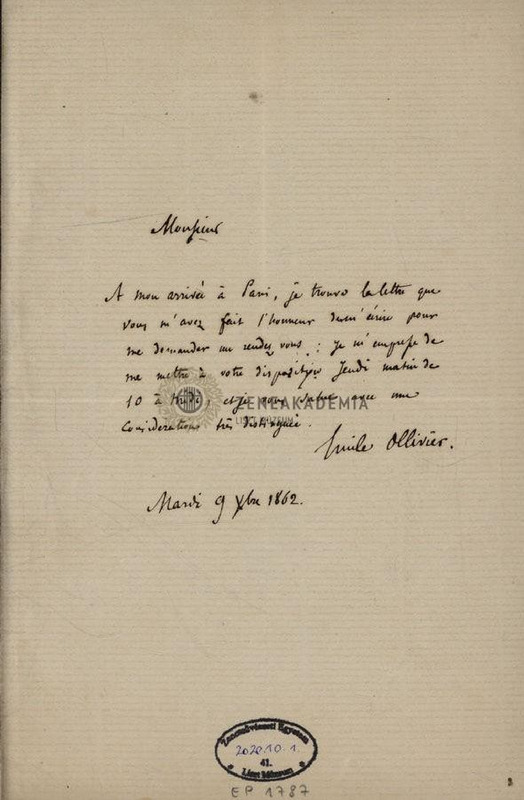 Monsieur
A mon arrivée à Paris, je trouve la lettre que
vous m'avez fait l'honneur de m'écrire pour
me demander un rendez vous : je m'empresse de
me mettre à votre disposition Jeudi matin de
10 à midi, et je vous salue avec une
considération très distinguée.
Emile Ollivier.
Mardi 9 Xbre 1862.
ZENEAKADÉMIA
LISZT MÚZEUM
Zeneművészeti Egyetem
2020.10.1.
41.
Liszt Múzeum
EP 1787